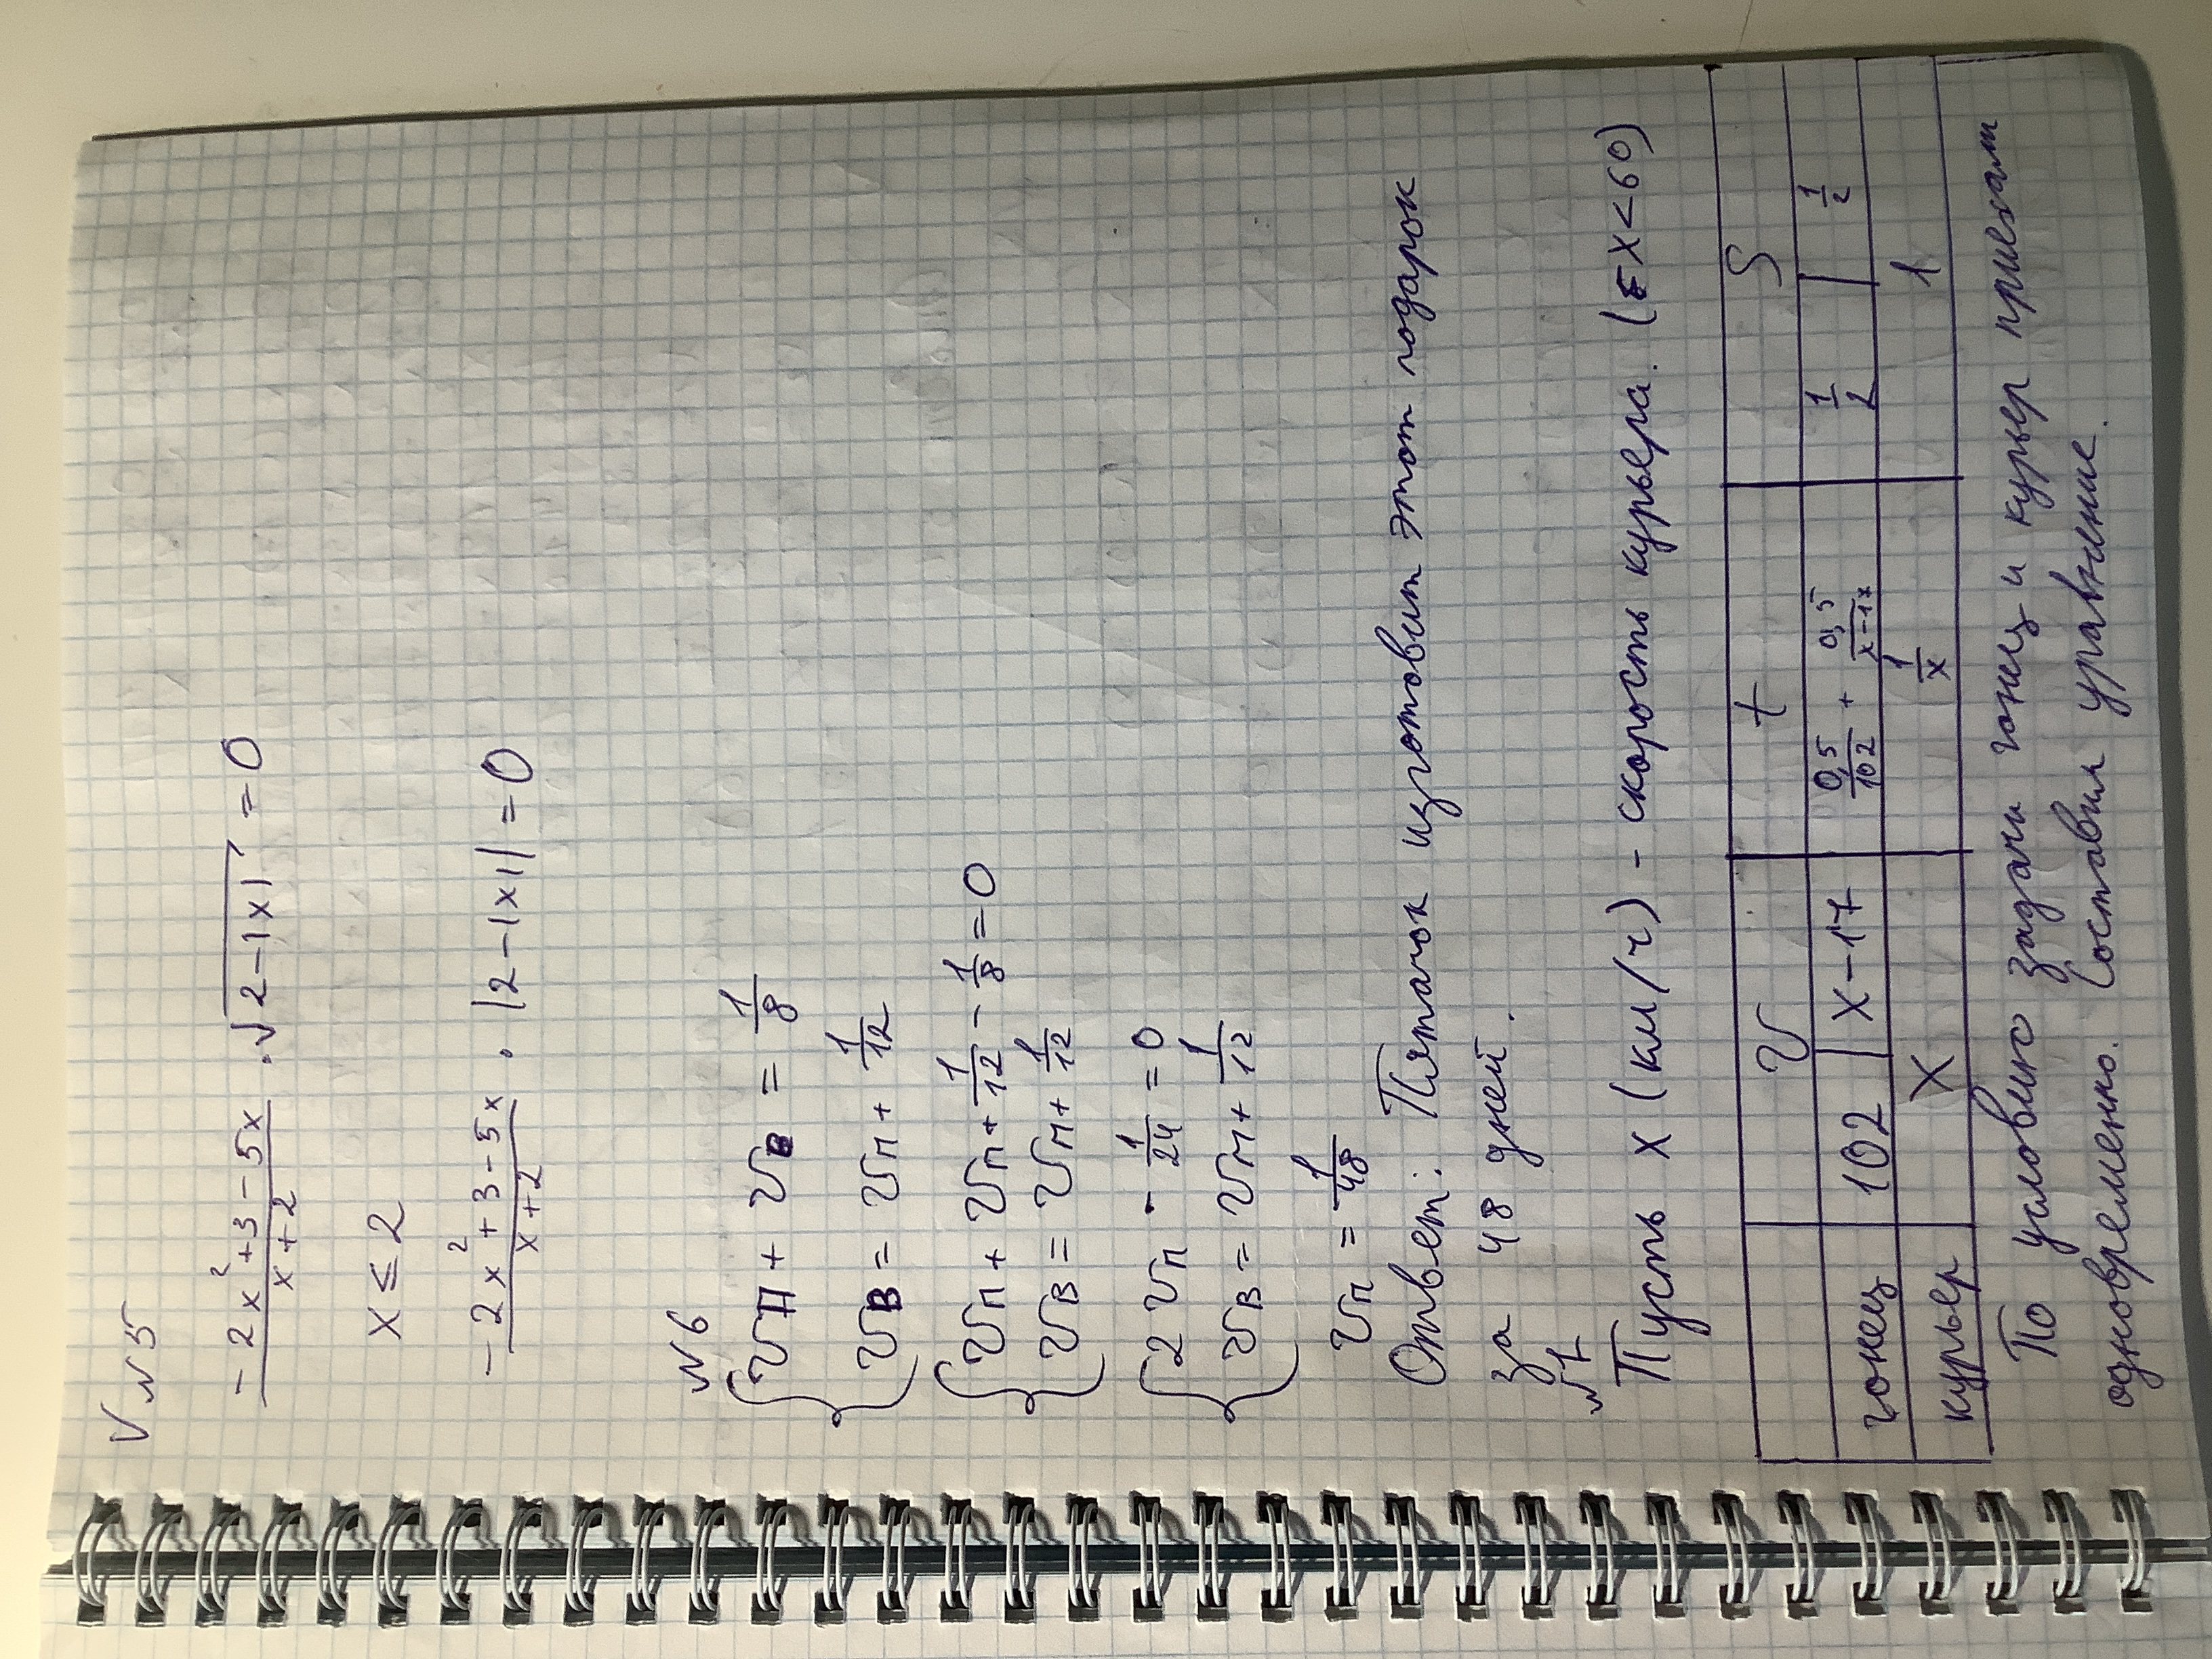 V №5
(-2x²+3-5x)/(x+2) · √(2-|x|) = 0
x ≤ 2
(-2x²+3-5x)/(x+2) · |2-|x|| = 0
№6
{ vп + vв = 1/8
vв = vп + 1/12
{ vп + vп + 1/12 - 1/8 = 0
vв = vп + 1/12
{ 2 vп - 1/24 = 0
vв = vп + 1/12
vп = 1/48
Ответ: Пятачок изготовит этот подарок
за 48 дней.
№1
Пусть x (км/ч) - скорость курьера. (x<60)
v t S
гонец 102 | x-17 0,5/102 + 0,5/(x-17) 1/2 | 1/2
курьер x 1/x 1
По условию задачи гонец и курьер приехали
одновременно. Составим уравнение.